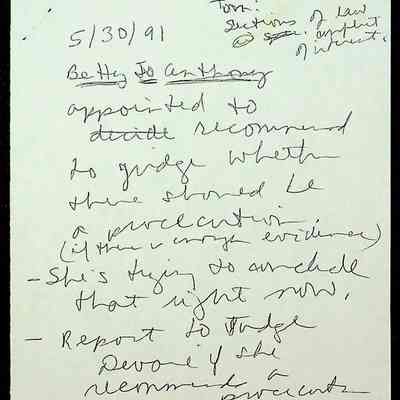 Tom:
Sections of law
@ conflict
of interest.
5/30/91
Betty Jo Anthony
appointed to
decide recommend
to judge whether
there should be
a prosecution.
(if there is enough evidence)
- She's trying to conclude
that right now.
- Report to Judge
Devane if she
recommend a
prosecution